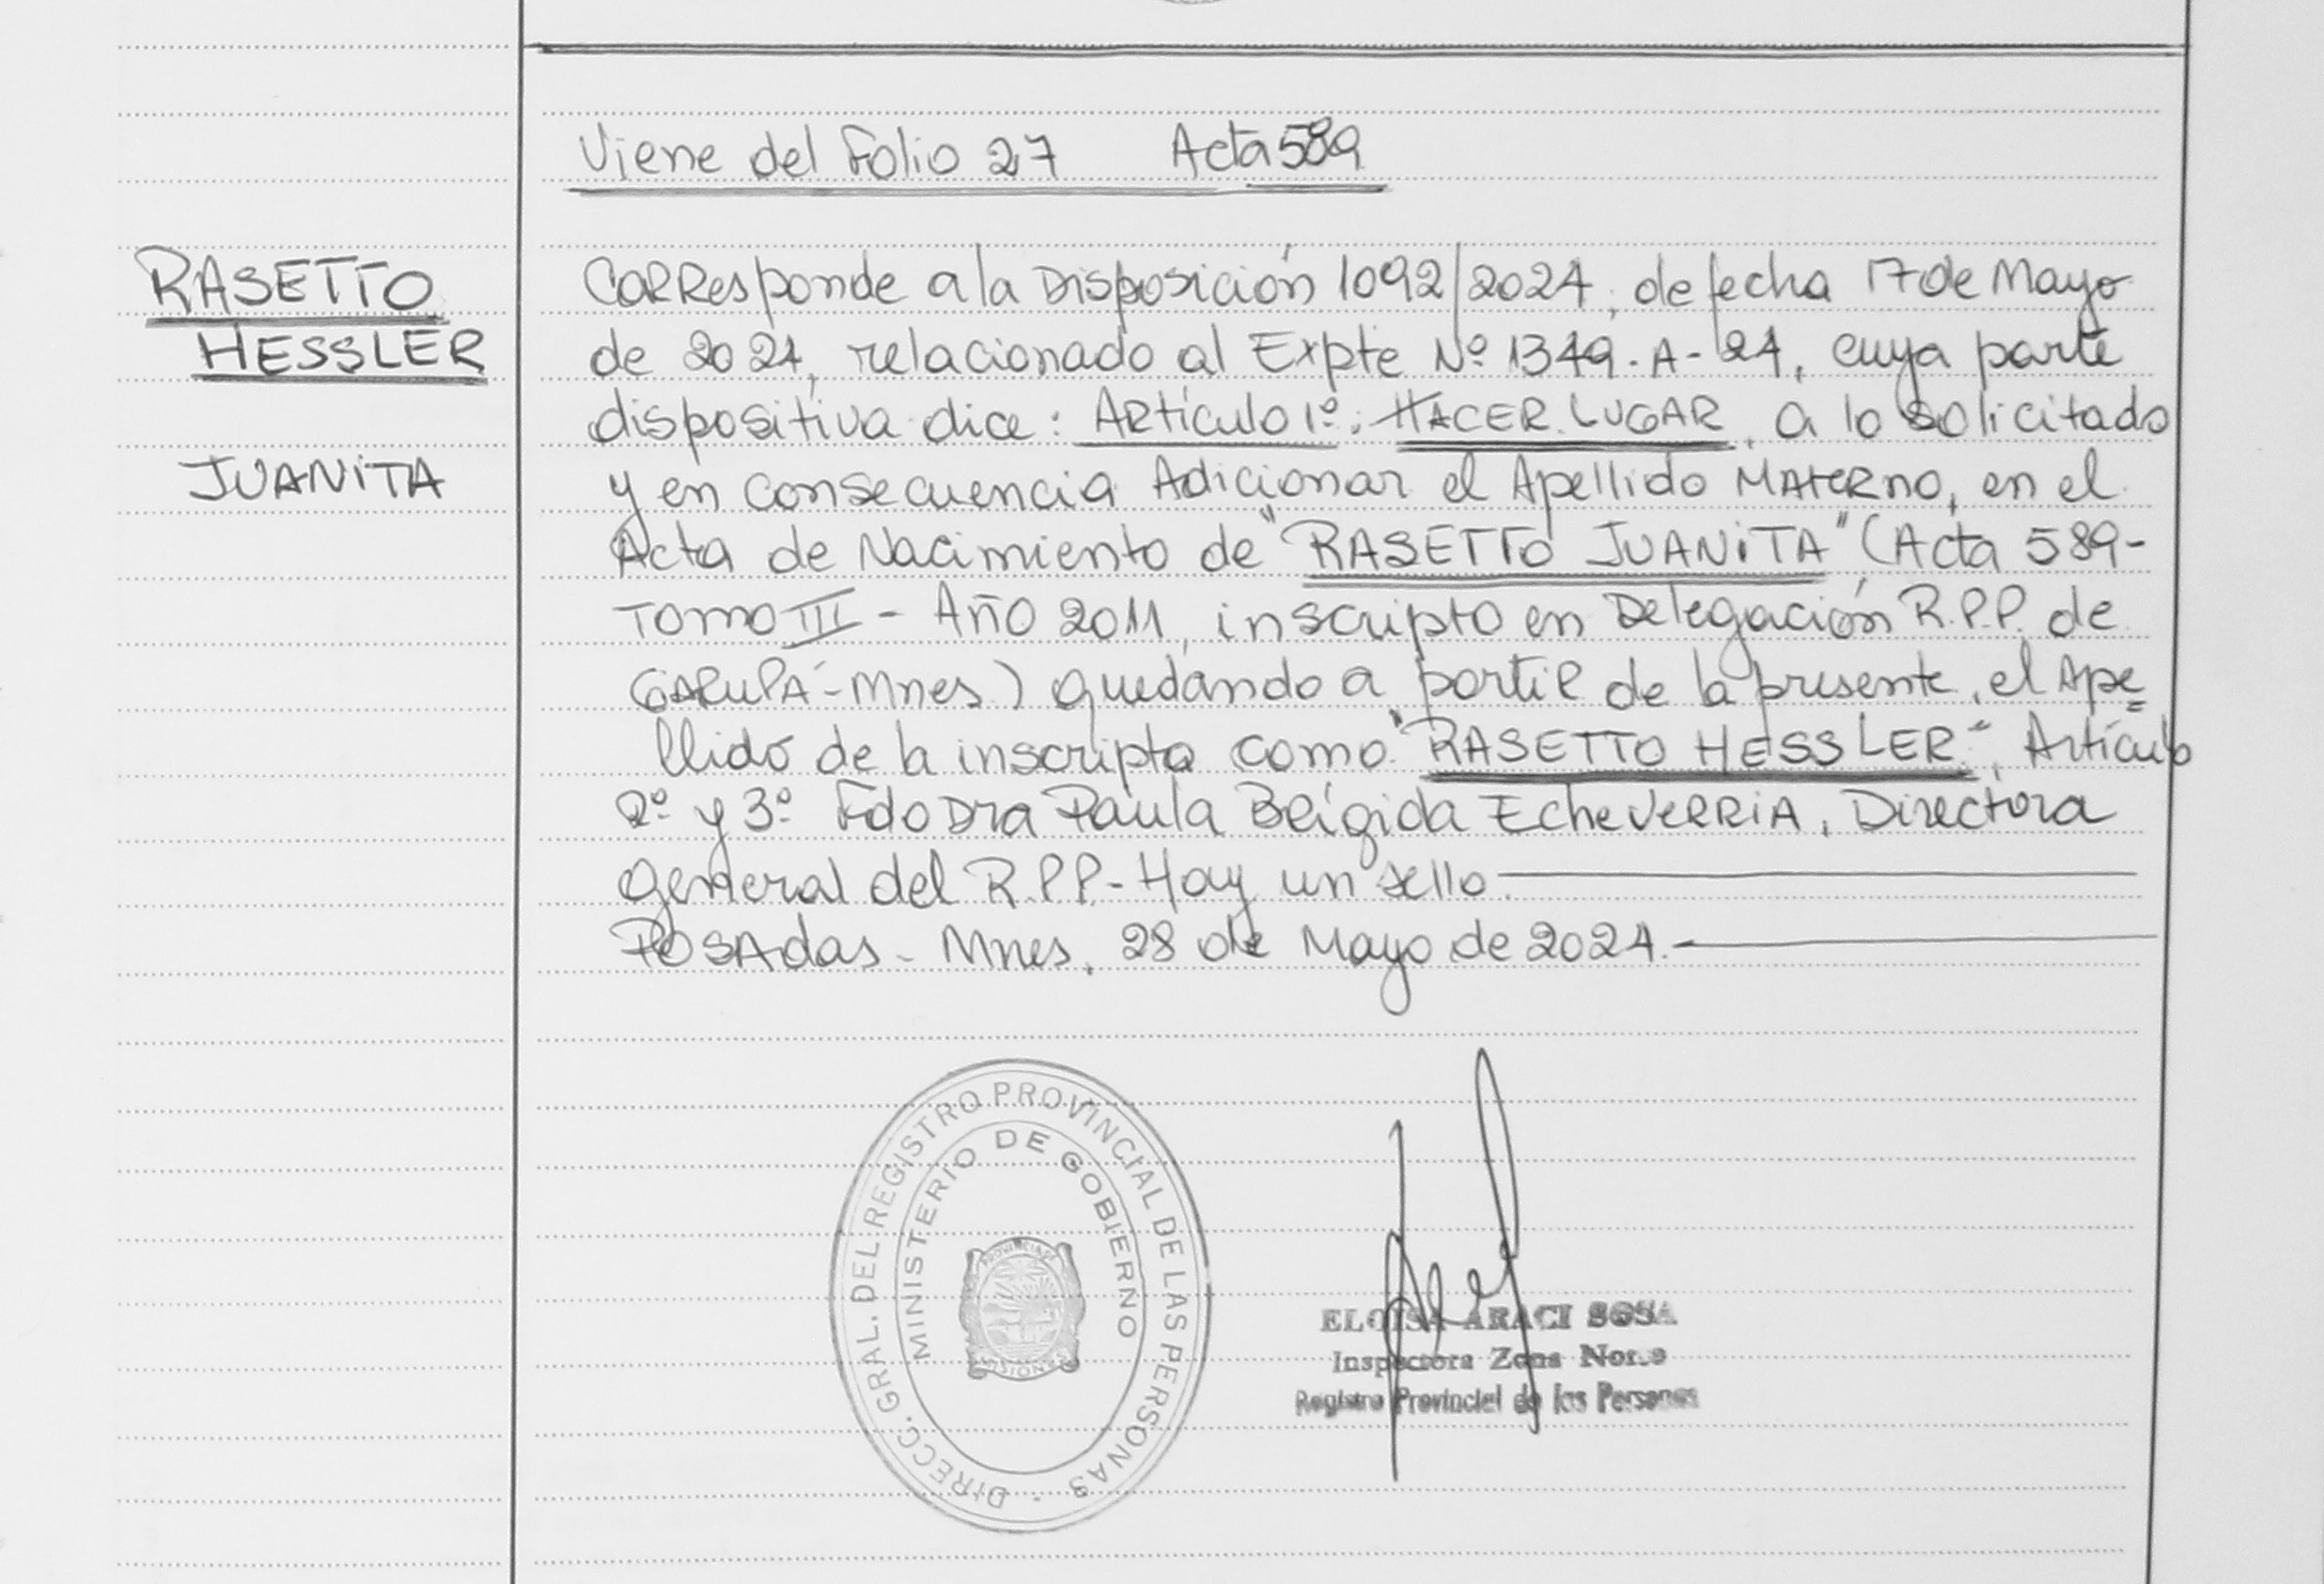 Viene del Folio 27 Acta 589
RASETTO
HESSLER
JUANITA
Corresponde a la Disposición 1092/2024, de fecha 17 de Mayo
de 2024, relacionado al Expte Nº 1349-A-24, cuya parte
dispositiva dice: Artículo 1º: HACER LUGAR, a lo solicitado
y en consecuencia Adicionar el Apellido MATERNO, en el
Acta de Nacimiento de "RASETTO JUANITA" (Acta 589-
Tomo III - Año 2011, inscripto en Delegación R.P.P. de
GARUPÁ-Mnes) quedando a partir de la presente, el Ape=
llido de la inscripta como "RASETTO HESSLER", Artículo
2º y 3º Fdo Dra Paula Brígida EcheVERRIA, Directora
General del R.P.P.- Hay un sello.
Posadas - Mnes, 28 de Mayo de 2024.-
DIRECC. GRAL. DEL REGISTRO PROVINCIAL DE LAS PERSONAS
MINISTERIO DE GOBIERNO
PROVINCIA DE
MISIONES
ELOISA ARACI SOSA
Inspectora Zona Norte
Registro Provincial de las Personas